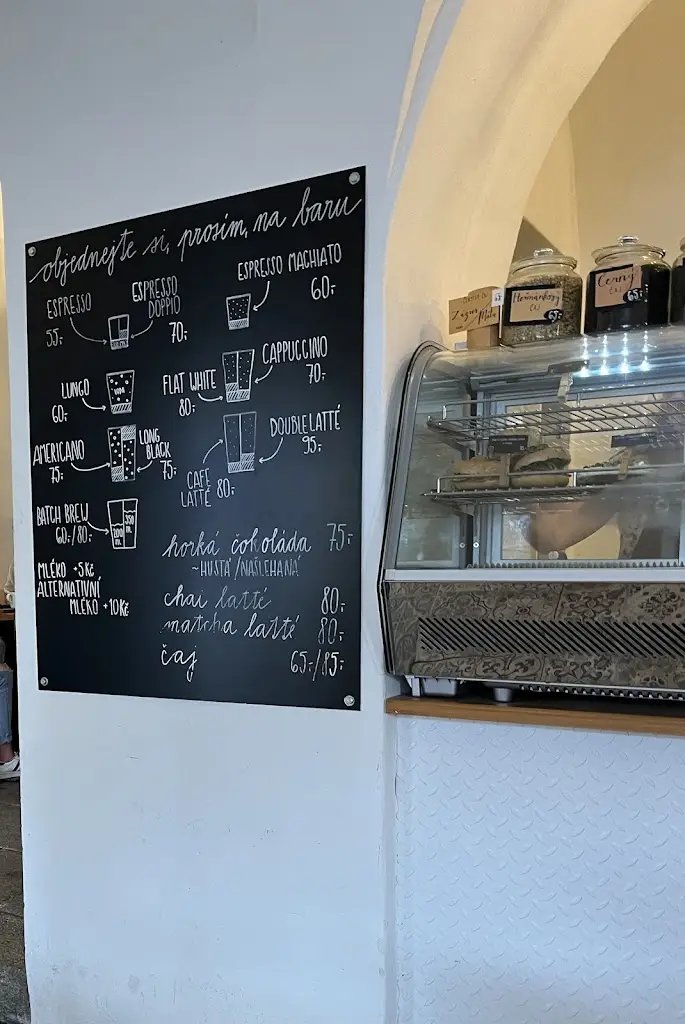 objednejte si, prosím, na baru
ESPRESSO
55,-
ESPRESSO
DOPPIO
70,-
ESPRESSO MACHIATO
60,-
LUNGO
60,-
FLAT WHITE
80,-
CAPPUCCINO
70,-
AMERICANO
75,-
LONG
BLACK
75,-
CAFE
LATTÉ 80,-
DOUBLE LATTÉ
95,-
BATCH BREW
60,-/80,-
MLÉKO +5Kč
ALTERNATIVNÍ
MLÉKO +10Kč
horká čokoláda 75,-
~HUSTÁ/NAŠLEHANÁ
chai latté 80,-
matcha latté 80,-
čaj 65,-/85,-
Černý
65,-
65,-